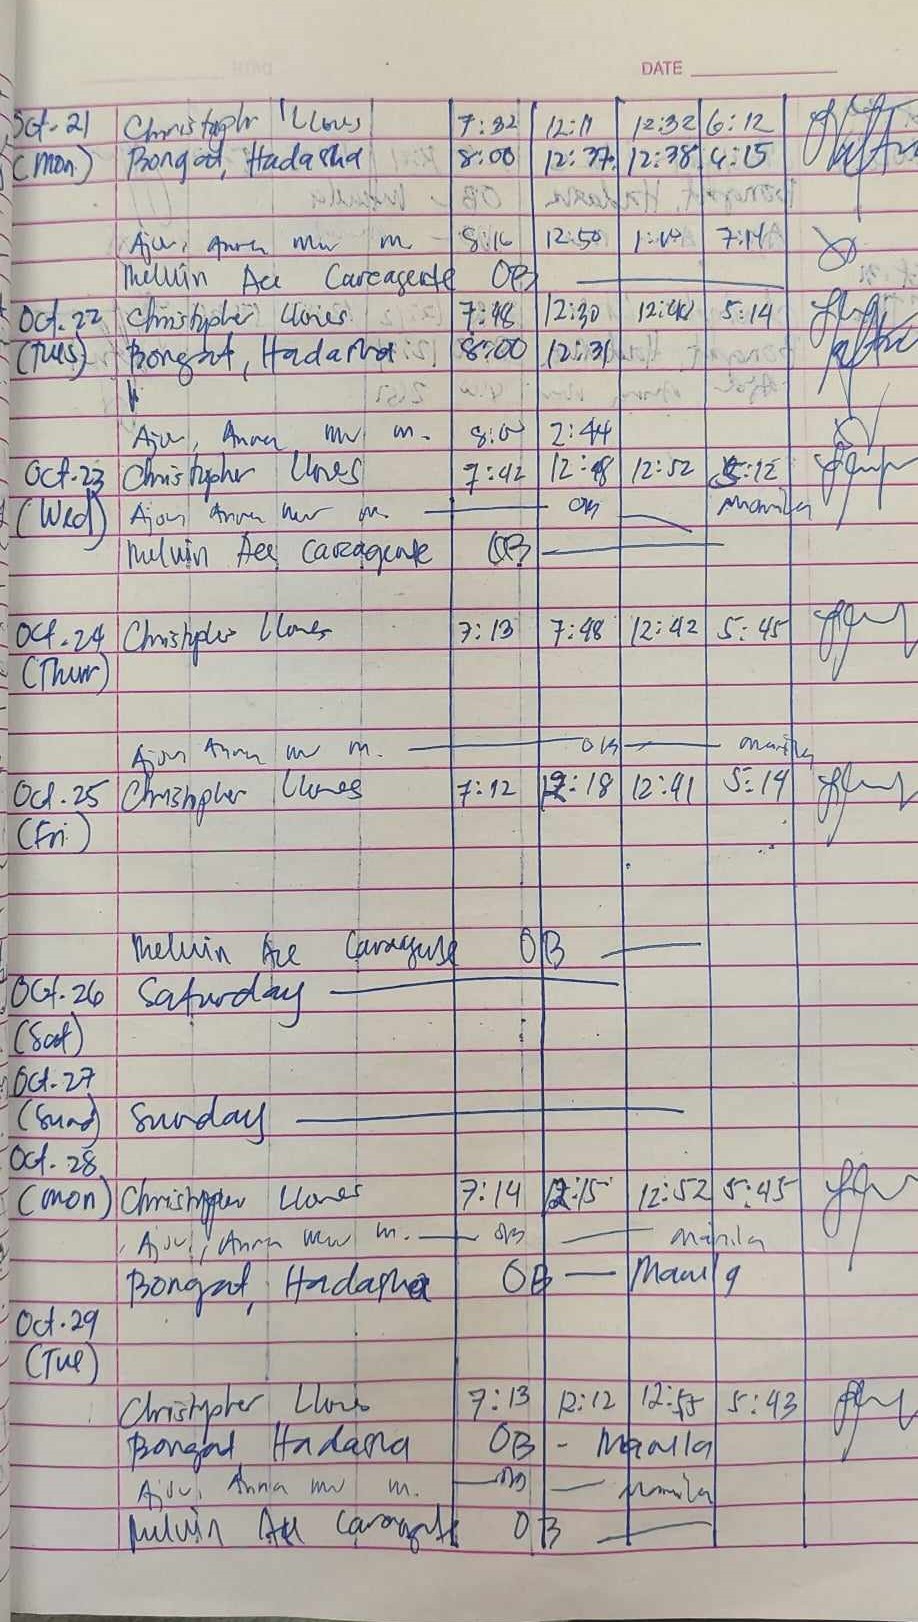 DATE
Oct. 21 Christopher Llones 7:32 12:11 12:32 6:12
(Mon) Bongat, Hadasha 8:00 12:37 12:38 4:15
Anna m. 8:16 12:50 7:14
Melvin Ace Carcagente OB
Oct. 22 Christopher Llones 7:48 12:30 12:41 5:14
(Tues) Bongat, Hadasha 8:00 12:31
Anna m. 2:44
Oct. 23 Christopher Llones 7:42 12:18 12:52 5:12
(Wed) Anna m. OB Manila
Melvin Ace Carcagente OB
Oct. 24 Christopher Llones 7:13 7:48 12:42 5:45
(Thur)
Anna m. OB Manila
Oct. 25 Christopher Llones 7:12 12:18 12:41 5:14
(Fri)
Melvin Ace Carcagente OB
Oct. 26 Saturday
(Sat)
Oct. 27
(Sund) Sunday
Oct. 28
(Mon) Christopher Llones 7:14 12:15 12:52 5:45
Anna m. OB Manila
Bongat, Hadasha OB — Manila
Oct. 29
(Tue)
Christopher Llones 7:13 12:12 12:55 5:43
Bongat Hadasha OB - Manila
Anna m. OB — Manila
Melvin Ace Carcagente OB